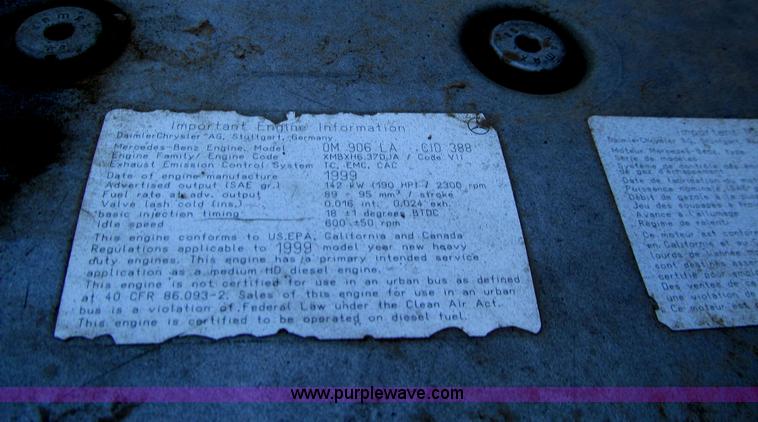 Important Engine Information
DaimlerChrysler AG, Stuttgart, Germany
Mercedes-Benz Engine, Model OM 906 LA CID 388
Engine Family/ Engine Code XMBXH6.37DJA / Code V11
Exhaust Emission Control System TC, EMC, CAC
Date of engine manufacture 1999
Advertised output (SAE gr.) 142 kW (190 HP) / 2300 rpm
Fuel rate at adv. output 89 - 95 mm³ / stroke
Valve lash cold (ins.) 0.016 int., 0.024 exh.
basic injection timing 18 ±1 degrees BTDC
Idle speed 600 ±50 rpm
This engine conforms to US.EPA, California and Canada
Regulations applicable to 1999 model year new heavy
duty engines. This engine has a primary intended service
application as a medium HD diesel engine.
This engine is not certified for use in an urban bus as defined
at 40 CFR 86.093-2. Sales of this engine for use in an urban
bus is a violation of Federal Law under the Clean Air Act.
This engine is certified to be operated on diesel fuel.
Importan
DaimlerChrysler AG,
Moteur Mercedes-Benz, type
Série de modèles
Système
de gaz d'échappement
Date de fabrication
Puissance nominale (SAE
Débit de gazole à la
Jeu des soupapes à froid
Avance à l'allumage
Régime de ralenti
Ce moteur est conforme
en Californie et au
lourds de l'année
sont destinés
certifié pour
Des ventes de ce
une violation de
Ce moteur est
www.purplewave.com